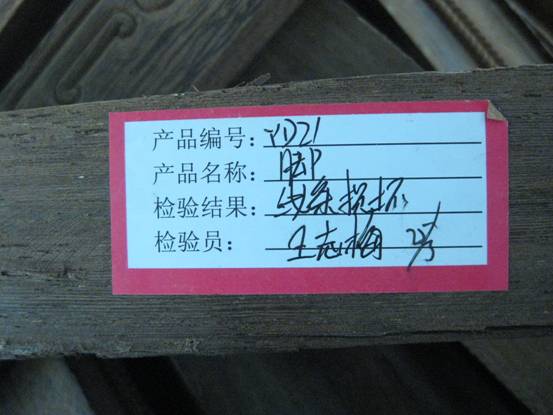 产品编号: YD21
产品名称: 脚
检验结果: 线条损坏
检验员: 王志梅